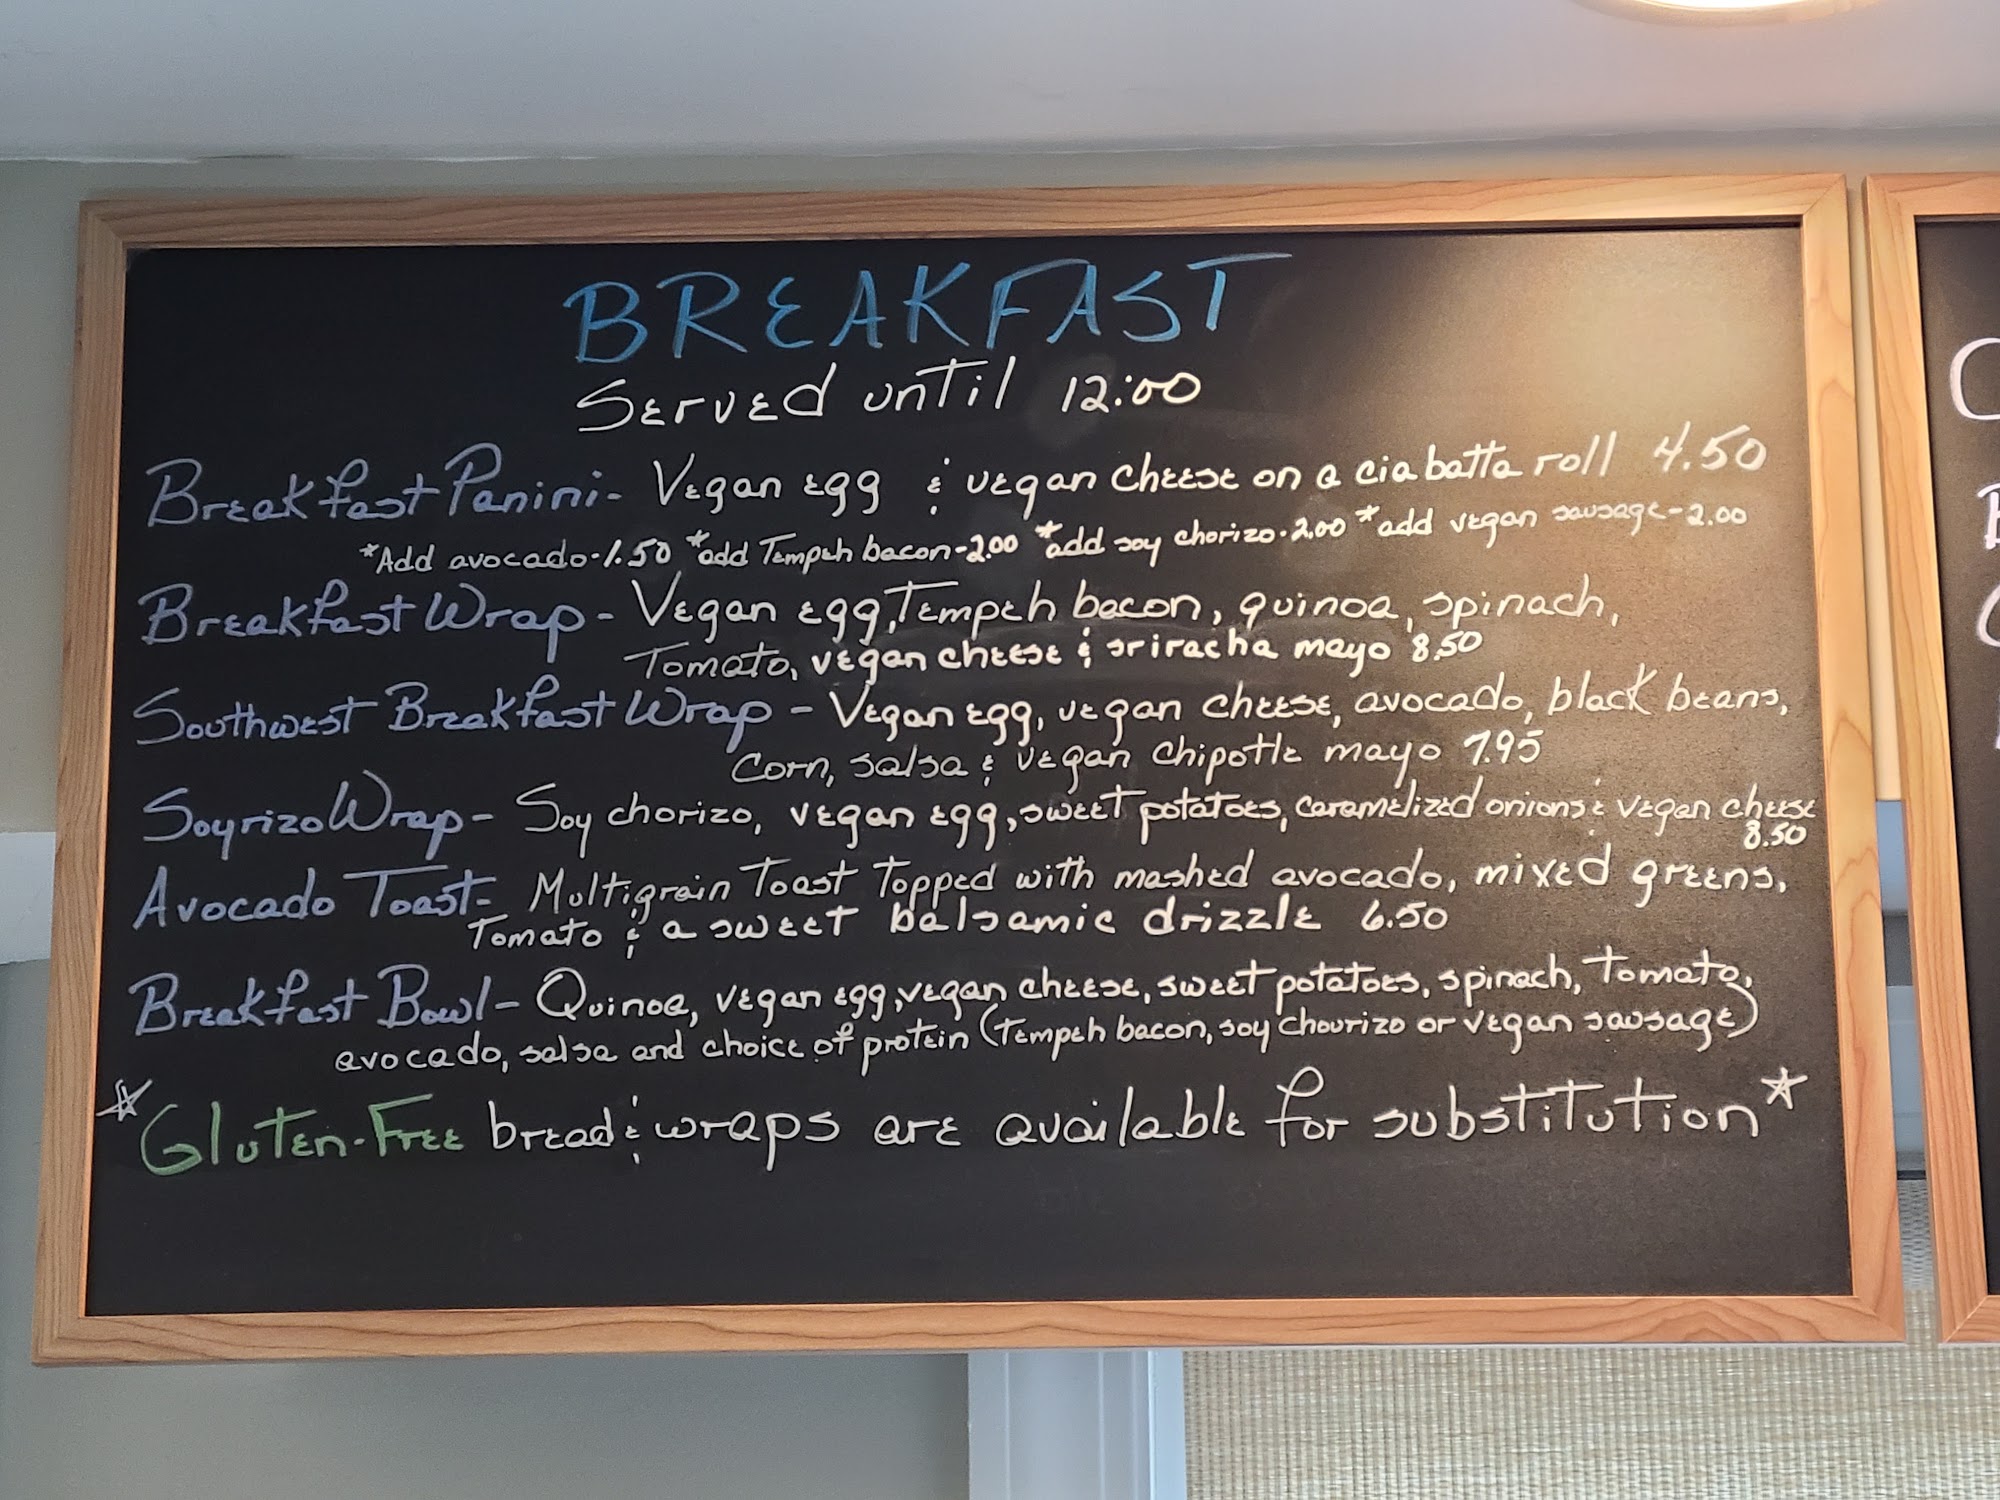 BREAKFAST
Served until 12:00
Breakfast Panini- Vegan egg & vegan cheese on a ciabatta roll 4.50
*Add avocado-1.50 *add Tempeh bacon-2.00 *add soy chorizo-2.00 *add vegan sausage-2.00
Breakfast Wrap- Vegan egg, Tempeh bacon, quinoa, spinach,
Tomato, vegan cheese & sriracha mayo 8.50
Southwest Breakfast Wrap - Vegan egg, vegan cheese, avocado, black beans,
Corn, salsa & vegan chipotle mayo 7.95
Soyrizo Wrap- Soy chorizo, vegan egg, sweet potatoes, caramelized onions & vegan cheese
8.50
Avocado Toast- Multigrain Toast Topped with mashed avocado, mixed greens,
Tomato & a sweet balsamic drizzle 6.50
Breakfast Bowl- Quinoa, vegan egg, vegan cheese, sweet potatoes, spinach, Tomato,
avocado, salsa and choice of protein (Tempeh bacon, soy chourizo or vegan sausage)
*Gluten-Free bread & wraps are available for substitution*